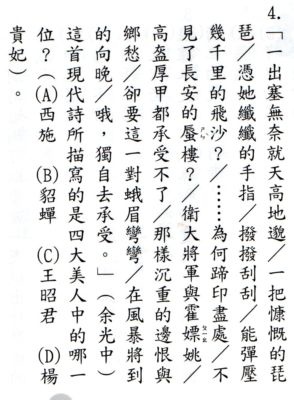 4.「一出塞無奈就天高地邈／一把慷慨的琵
琶／憑她纖纖的手指／撥撥刮刮／能彈壓
幾千里的飛沙？／……為何蹄印盡處／不
見了長安的蜃樓？／衛大將軍與霍嫖姚／
高盔厚甲都承受不了／那樣沉重的邊恨與
鄉愁／卻要這一對蛾眉彎彎／在風暴將到
的向晚／哦，獨自去承受。」（余光中）
這首現代詩所描寫的是四大美人中的哪一
位？(A)西施　(B)貂蟬　(C)王昭君　(D)楊
貴妃）。